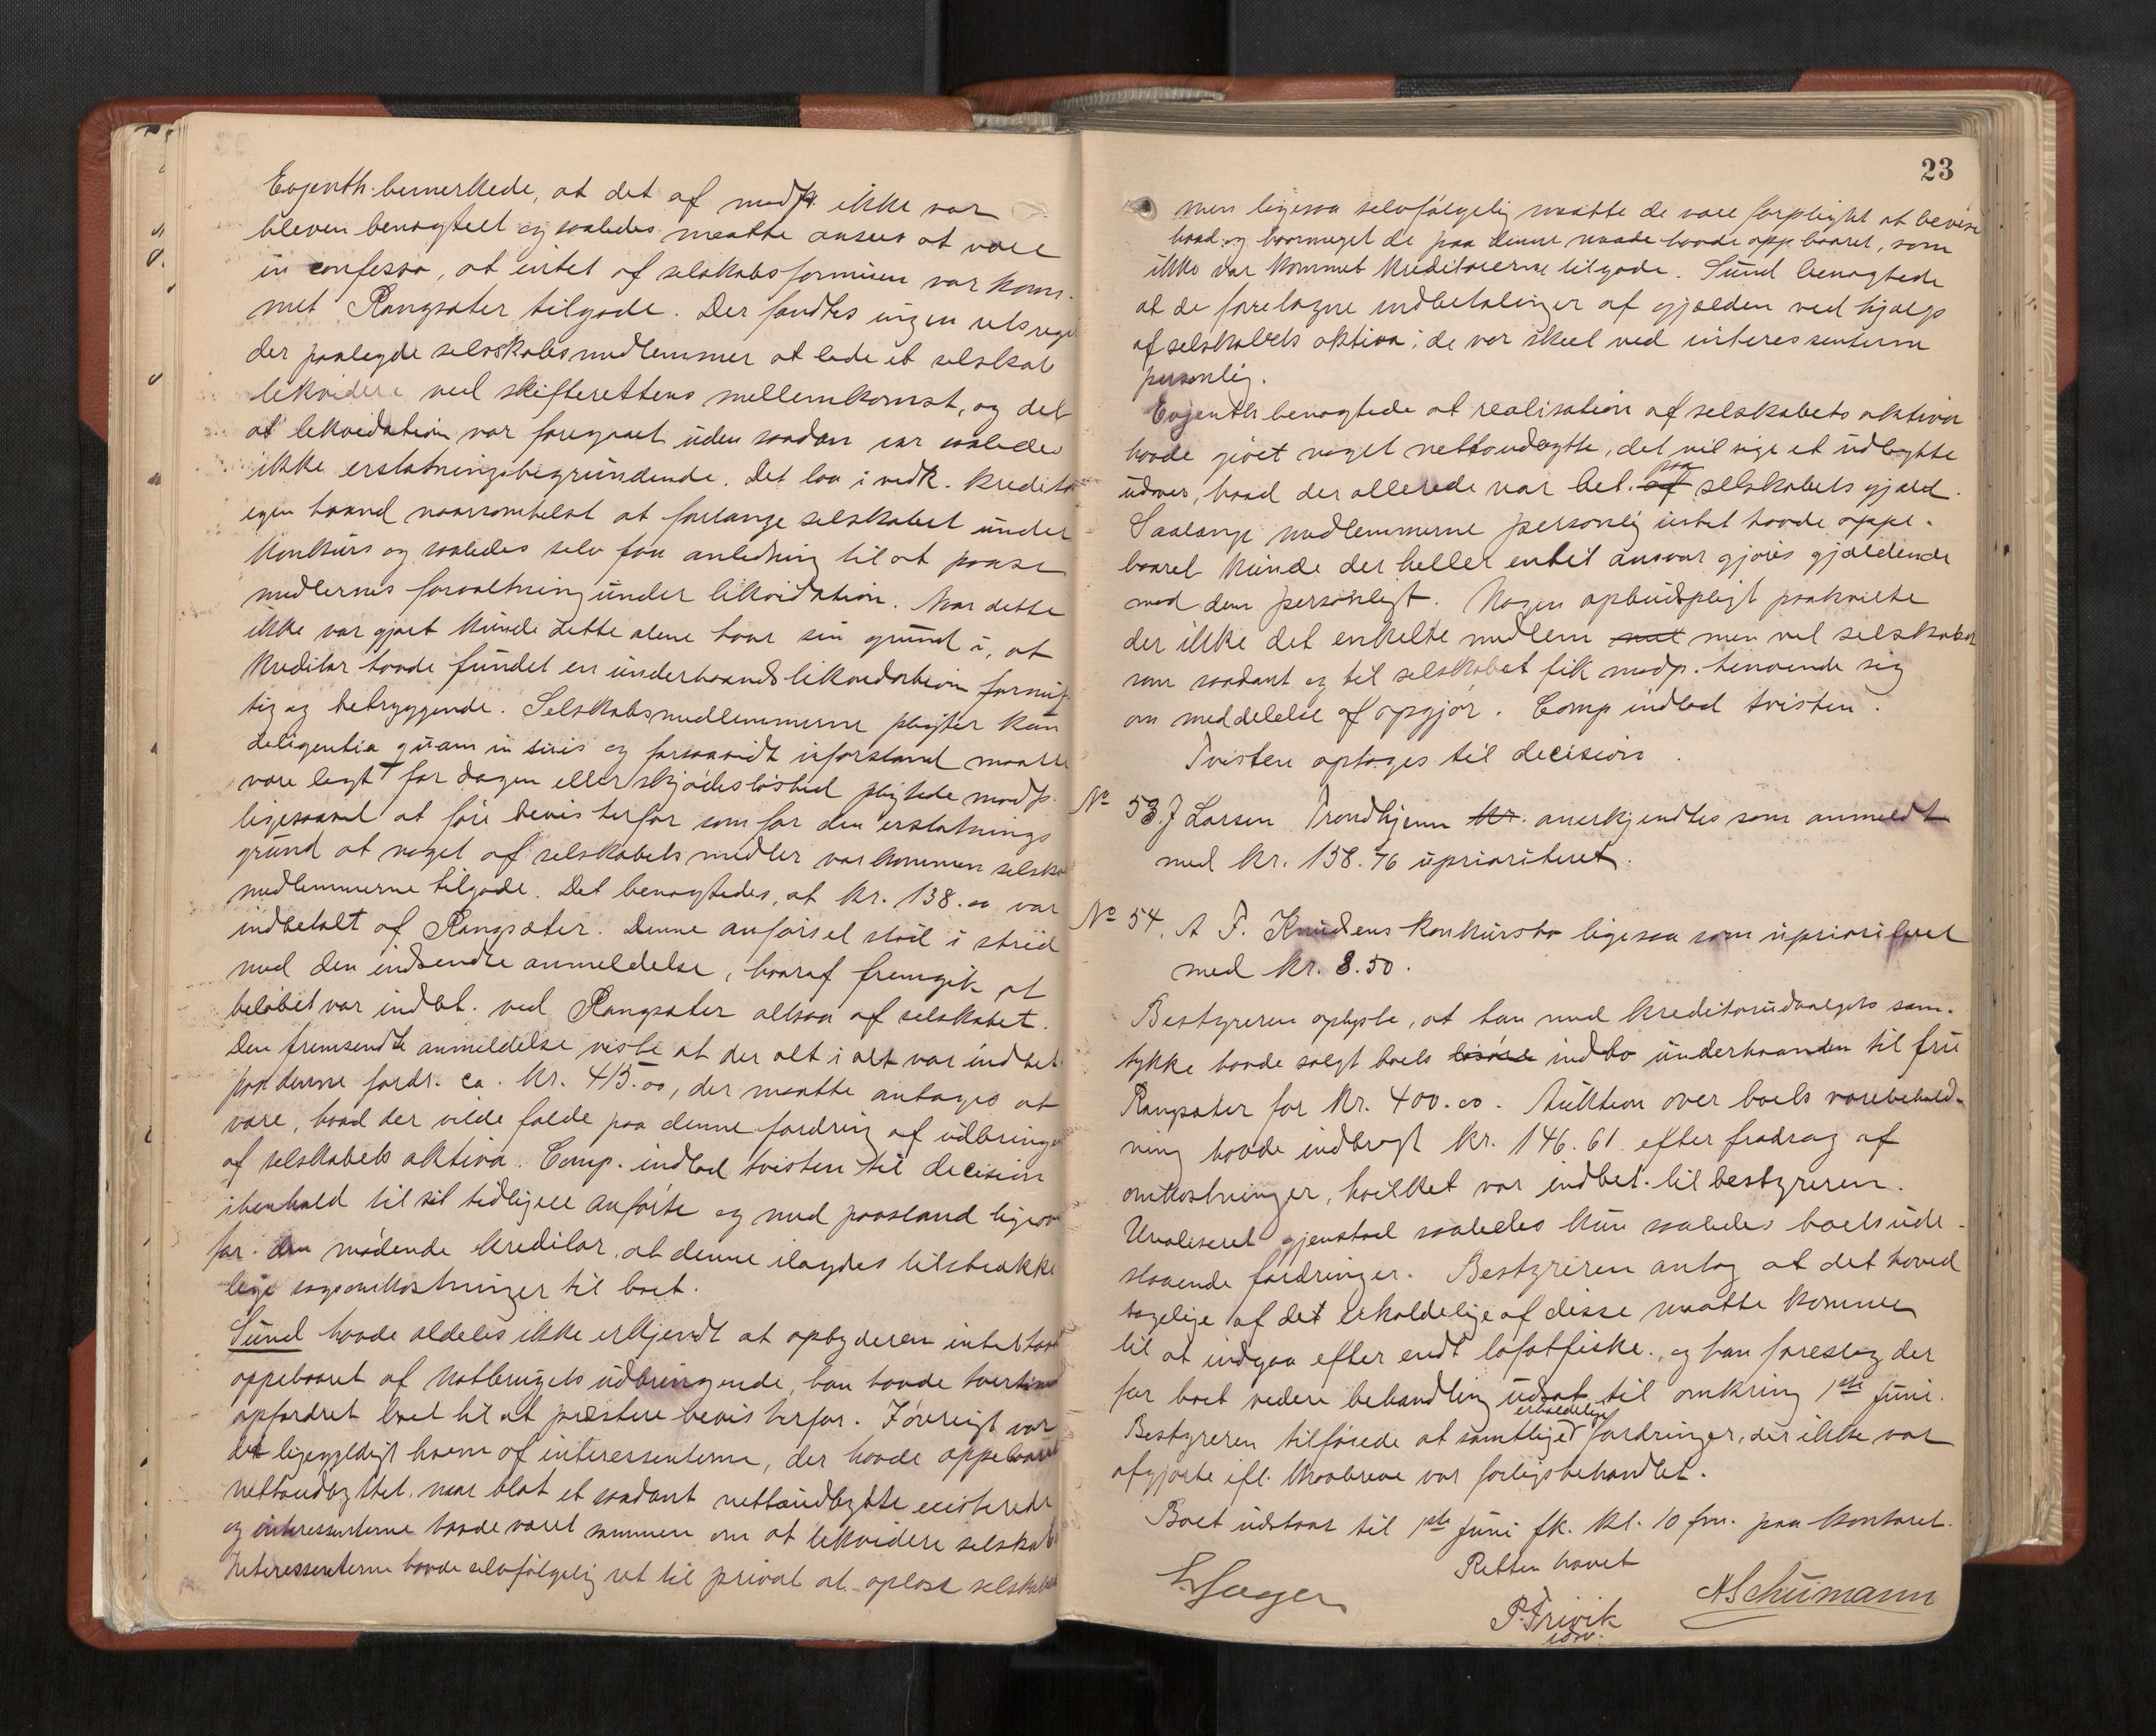 Evjenth. bemerkede, at det af modp. ikke var
bleven benægtet og saaledes maatte ansees at være
in confesso, at intet af selskabsformuen var kom-
met Rangsæter tilgode. Der fandtes ingen retsregel
der paalegde selsskabsmedlemmer at lade et selskab
likvidere ved skifterettens mellemkomst, og det
at likvidation var foregaaet uden saadan var saaledes
ikke erstatningsbegrundende. Det laa i vedk. kreditors
egen haand naarsomhelst at forlange selskabet under
konkurs og saaledes selv faa anledning til at paase
midlernes forvaltning under likvidation. Naar dette
ikke var gjort kunde dette alene have sin grund i, at
kreditor havde fundet en underhaandslikvidation fornuf-
tig og betryggende. Selskabsmedlemmerne pligter kun
deligentia quam in suis og forsaavidt uforstand maatte
være lagt for dagen eller skjødesløshed pligtede modp.
ligesaavel at føre bevis herfor som for den erstatnings
grund at noget af selskabets midler var kommen selskabs
medlemmerne tilgode. Det benægtedes, at kr. 138.00 var
indbetalt af Rangsæter. Denne anførsel stod i strid
med den indsendte anmeldelse, hvoraf fremgik at
beløbet var indbt. ved Rangsæter altsaa af selskabet.
Den fremsendte anmeldelse viste at der alt i alt var indbet.
paa denne fordr. ca. kr. 415.00, der maatte antages at
være, hvad der vilde falde paa denne fordring af udbringet
af selskabets aktiva. Comp. indlod tvisten til decision
ihenhold til sit tidligere anførte og med paastand ligeover
for den mødende kreditor, at denne ilægdes tilstrække
lige sagsomkostninger til boet.
Sund havde aldeles ikke erkjendt at opbyderen intet havde
oppebaaret af Notbrugets udbringende, han havde tvertimod
opfordret boet til at præstere bevis herfor. Iøvrigt var
det ligegyldigt hvem af interessenterne, der havde oppebaaret
nettoudbyttet, naar blot et saadant nettoudbytte existerede
og interessenterne havde været sammen om at likvidere selskabet
Interessenterne havde selvfølgelig ret til privat at opløse selskabet
23
men ligesaa selvfølgelig maatte de være forpligtet at bevise
hvad og hvormeget de paa denne maade havde oppebaaret, som
ikke var kommet kreditorerne tilgode. Sund benægtede
at de foretagne indbetalinger af gjælden ved hjælp
af selskabets aktiva; de var skeet ved interessenterne
personlig.
Evjenth benægtede at realisation af selskabets aktiva
havde givet noget nettoudbytte, det vil sige et udbytte
udover, hvad der allerede var bet. af paa selskabets gjæld.
Saalænge medlemmerne personlig intet havde oppe-
baaret kunde der heller intet ansvar gjøres gjældende
mod dem personligt. Nogen opbudspligt paahvilte
der ikke det enkelte medlem mat men vel selskabet
som saadant og til selskabet fik modp. henvende sig
om meddelelse af opgjør. Comp indlod tvisten.
Tvisten optages til decision.
No 53. J Larsen Trondhjem kr. anerkjendtes som anmeldt
med kr. 138.76 uprioriteret.
No 54. A F. Knudsens konkursbo ligesaa som uprioriteret
med kr. 8.50.
Bestyreren oplyste, at han med kreditorudvalgets sam-
tykke havde solgt boets løsøre indbo underhaanden til fru
Rangsæter for kr. 400.00. Auktion over boets varebehold-
ning havde indbragt kr. 146.61 efter fradrag af
omkostninger, hvilket var indbet. til bestyreren.
Urealiseret gjenstod saaledes kun saaledes boets ude-
staaende fordringer. Bestyreren antog at det hoved
sagelige af det erholdelige af disse maatte komme
til at indgaa efter endt lofotfiske, og han foreslog der
for boet videre behandling udsat til omkring 1ste Juni.
Bestyreren tilførede at samtlige erholdelige fordringer, der ikke var
afgjorte ifl. kravbreve var forligsbehandlet.
Boet udstaar til 1ste Juni fk. kl. 10 fm. paa kontoret.
Retten hævet
P. Trivik
edsv.
A Schumann